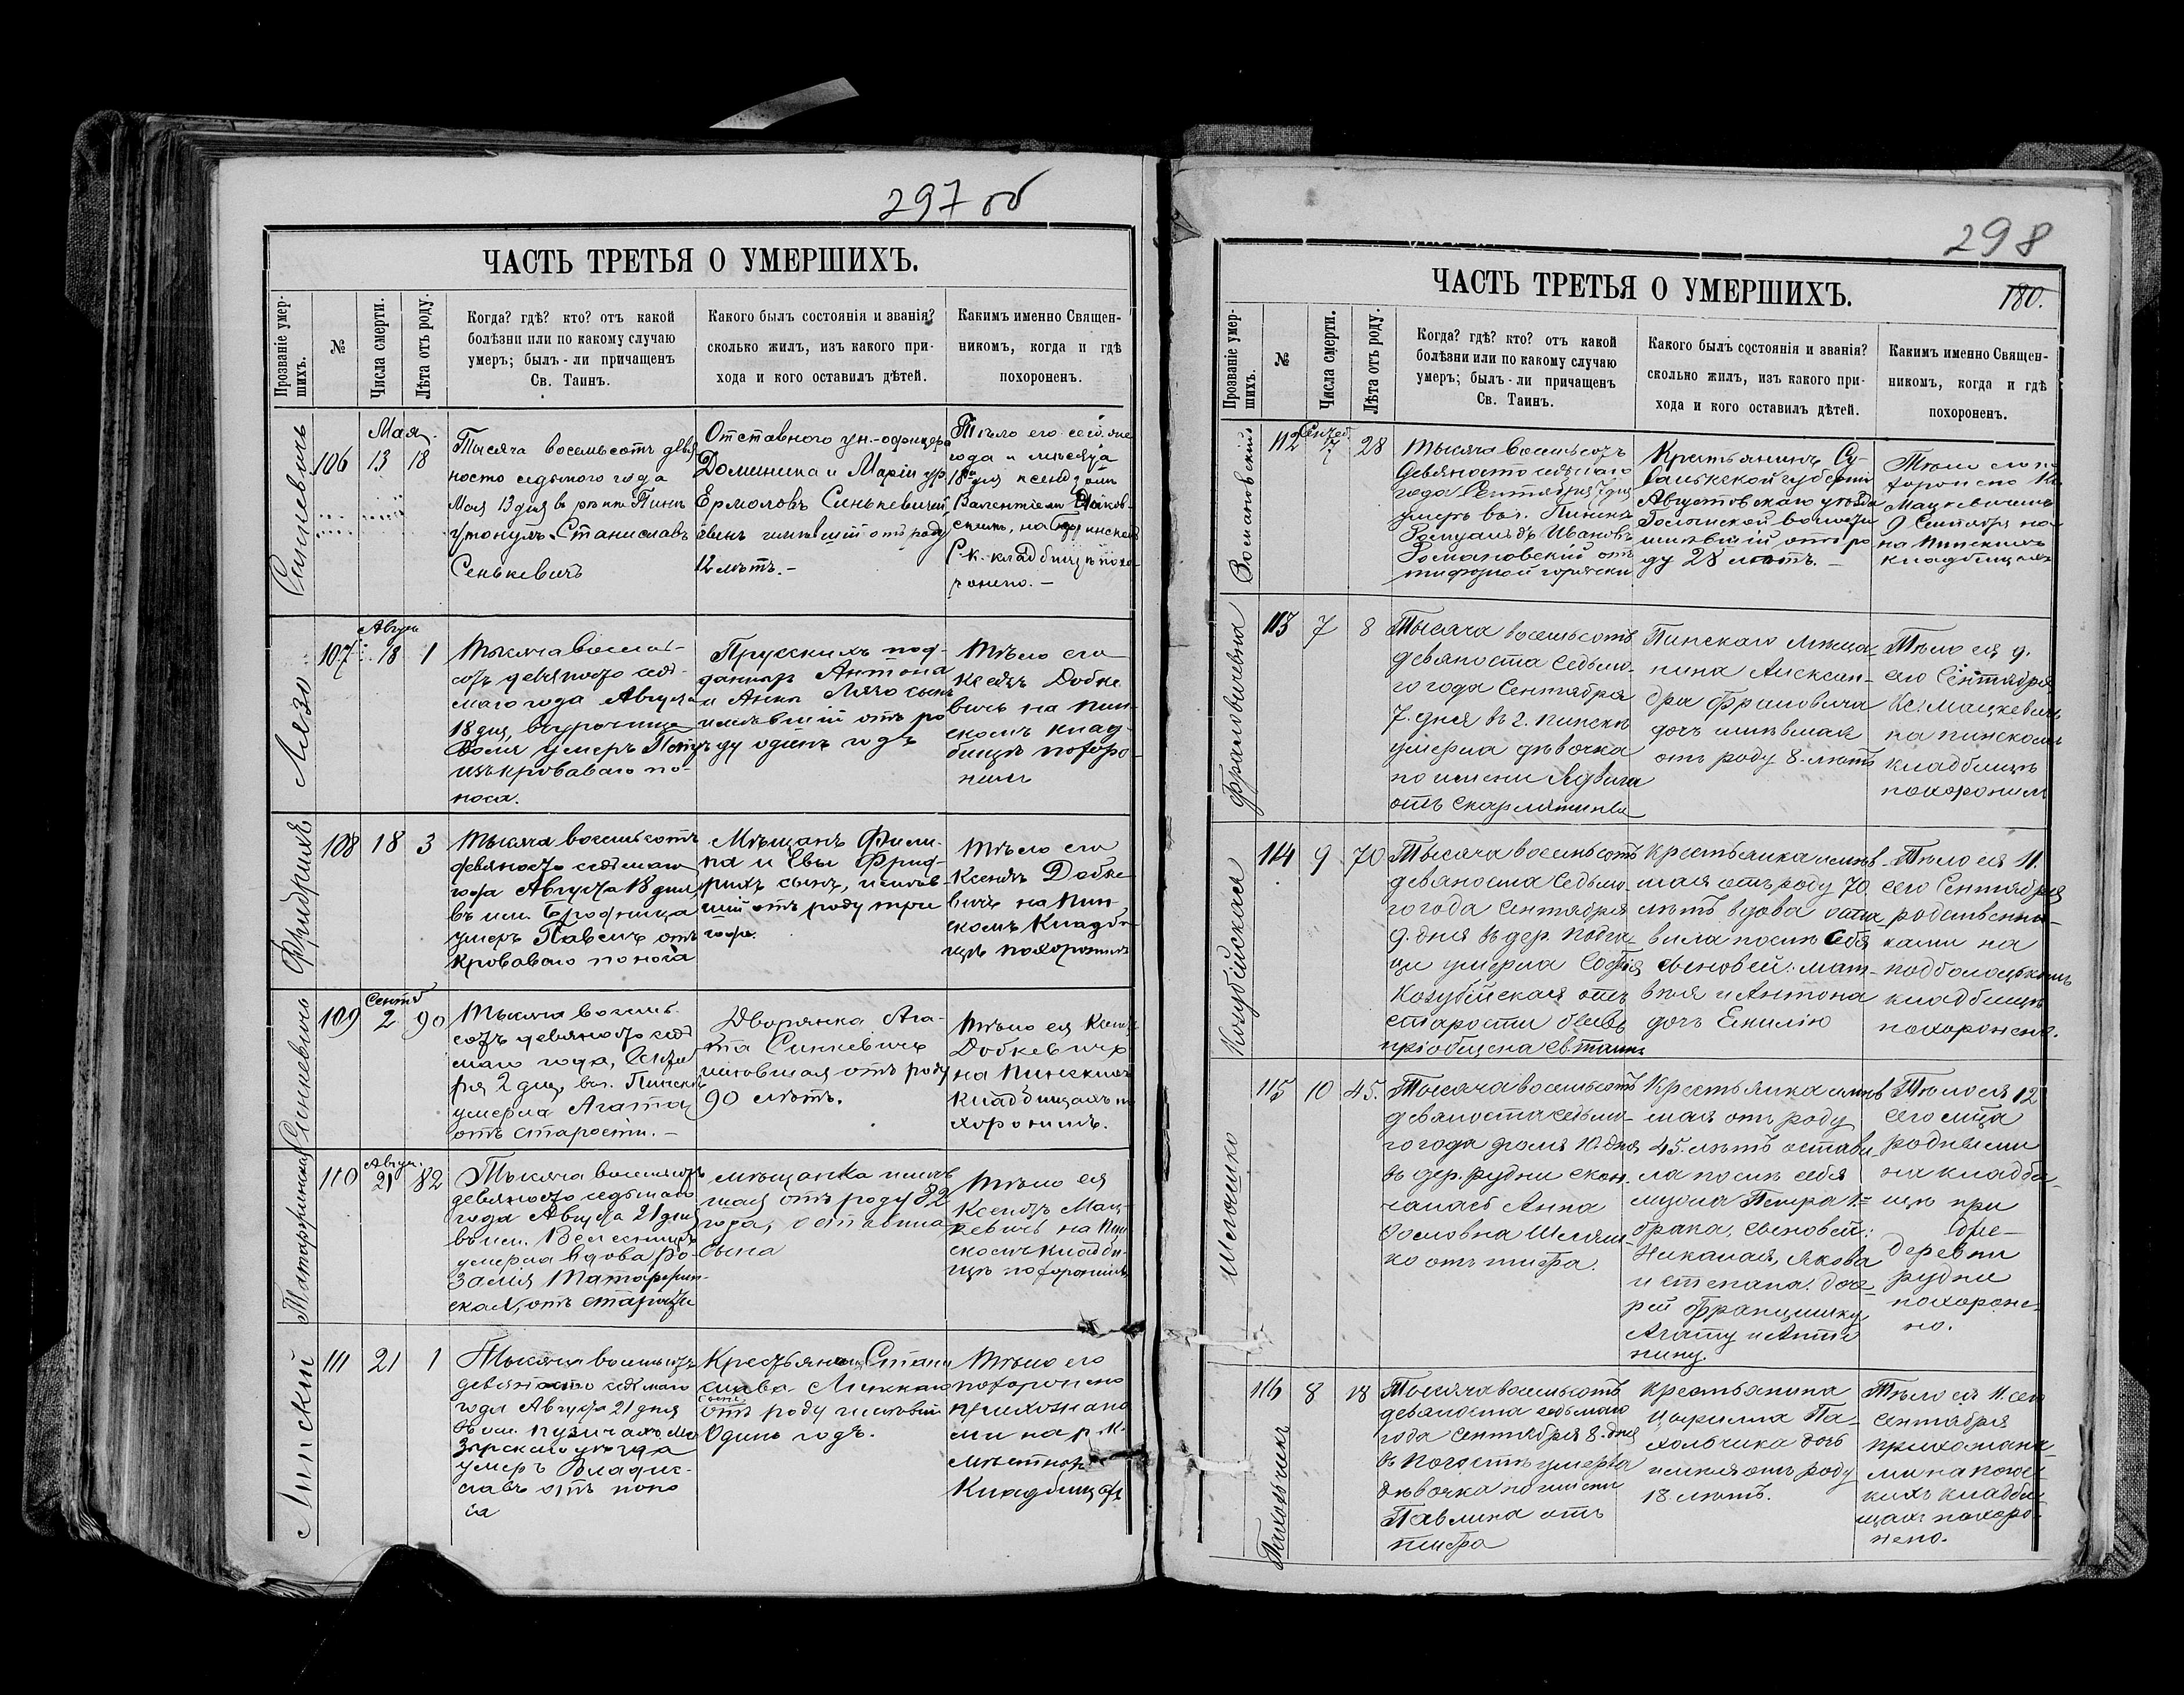 297 об
ЧАСТЬ ТРЕТЬЯ О УМЕРШИХЪ.
Прозваніе умер-
шихъ.
№
Числа смерти.
Лѣта отъ роду.
Когда? гдѣ? кто? отъ какой
болѣзни или по какому случаю
умеръ; былъ-ли причащенъ
Св. Таинъ.
Какого былъ состоянія и званія?
сколько жилъ, изъ какого при-
хода и кого оставилъ дѣтей.
Какимъ именно Священ-
никомъ, когда и гдѣ
похороненъ.
Синкевичъ
106
Мая
13
18
Тысяча восемьсотъ девя
носто седьмого года
Мая 13 дня в рѣкѣ Пинѣ
утонулъ Станиславъ
Сенькевичъ
Отставного ун.-офицера
Доминика и Маріи ур.
Ермоловъ Синькевичей
сынъ имѣвшій отъ роду
12 лѣтъ.-
Тѣло его сего же
года и мѣсяца
18 дня ксендзомъ
Валентіемъ
на
Р.-к. кладбищѣ похо-
ронено.-
Лязо
107
Август
18
1
Тысяча восемь-
сотъ девяносто седь-
маго года Августа
18 дня, въ урочищѣ
Воля умеръ Петръ
изъ кроваваго по-
носа.
Прусскихъ под-
данныхъ Антона
и Анны Лязо сынъ
имѣвшій отъ ро
ду одинъ годъ
Тѣло его
Ксендзъ Добке
вичъ на Пин-
скомъ клад-
бищѣ похоро-
нилъ
Фридрихъ
108
18
3
Тысяча восемьсотъ
девяносто седьмаго
года Августа 18 дня,
въ им. Бродница
умеръ Павелъ отъ
кроваваго поноса
Мѣщанъ Фили-
па и Евы Фрид-
рихъ сынъ, имѣв-
шій отъ роду три
года.
Тѣло его
Ксендзъ Добке-
вичъ на Пин-
скомъ Кладби-
щѣ похоронилъ
Синкевичъ
109
Сентяб
2
90
Тысяча восемь-
сотъ девяносто седь
маго года, Сентяб
ря 2 дня, въ г. Пинскѣ
умерла Агата
отъ старости.-
Дворянка Ага-
та Синкевичъ
имѣвшая отъ роду
90 лѣтъ.
Тѣло ея Ксендзъ
Добкевичъ
на Пинскихъ
Кладбищахъ по
хоронилъ.
Татаржинская
110
Август
21
82
Тысяча восемьсотъ
девяносто седьмаго
года Августа 21 дня
въ им.
умерла вдова Ро-
залія Татаржин-
ская, отъ старости
Мѣщанка имѣв
шая отъ роду 82
года, оставила
сына
Тѣло ея
Ксендзъ Мац-
кевичъ на Пин
скомъ кладби-
щѣ похоронилъ
Липскій
111
21
1
Тысяча восемьсотъ
девяносто седьмаго
года Августа 21 дня
въ им. Пузичахъ Мо
зырскаго уѣзда
умеръ Владис-
лавъ отъ поно
са
Крестьянина Стани
слава Липскаго
сынъ
отъ роду имѣвшій
Одинъ годъ.
Тѣло его
похоронено
прихожана
ми на р.к.
мѣстномъ
Кладбищѣ
298
ЧАСТЬ ТРЕТЬЯ О УМЕРШИХЪ.
180.
Прозваніе умер-
шихъ.
№
Числа смерти.
Лѣта отъ роду.
Когда? гдѣ? кто? отъ какой
болѣзни или по какому случаю
умеръ; былъ-ли причащенъ
Св. Таинъ.
Какого былъ состоянія и званія?
сколько жилъ, изъ какого при-
хода и кого оставилъ дѣтей.
Какимъ именно Священ-
никомъ, когда и гдѣ
похороненъ.
112
Сентяб.
7
28
Тысяча восемьсотъ
девяносто седьмаго
года Сентября 7 дня
умеръ въ г. Пинскѣ
Ромуальдъ Ивановъ
отъ
тифозной горячки
Крестьянинъ Су-
валкской губерніи
Августовскаго уѣзда
волости
имѣвшій отъ ро
ду 28 лѣтъ.-
Тѣло его по
хоронено Кс.
Мацкевичемъ
9 Сентября на
на Пинскихъ
кладбищахъ
Франовичевна
113
7
8
Тысяча восемьсотъ
девяноста седьмо-
го года Сентября
7. дня въ г. Пинскѣ
умерла дѣвочка
по имени Ядвига
отъ скарлятины
Пинскаго мѣща-
нина Алексан-
дра Франовича
дочь имѣвшая
отъ роду 8. лѣтъ
Тѣло ея 9.
сего Сентября
Кс. Мацкевичъ
на пинскомъ
кладбищѣ
похоронилъ
Козубійская
114
9
70
Тысяча восемьсотъ
девяноста седьмо-
го года Сентября
9. дня въ дер.
умерла Софія
Козубійская отъ
старости бывъ
пріобщена св. таинъ
Крестьянка имѣв-
шая отъ роду 70
лѣтъ вдова оста-
вила послѣ себя
сыновей: Мат-
вѣя и Антона
дочь Емилію
Тѣло ея 11
сего Сентября
родственни-
ками на
кладбищѣ
похоронено.
Шеляшко
115
10
45.
Тысяча восемьсотъ
девяноста седьмо-
го года дня
въ дер. Рудни скон-
чалась Анна
Осиповна Шеляш-
ко отъ тифа.
Крестьянка имѣв
шая отъ роду
45. лѣтъ остави-
ла послѣ себя
мужа Петра 1-
брака, сыновей:
Николая, Якова
и Степана. доче-
рей Францишку
Агату и Анто
нину.
Тѣло ея 12
сего мѣца
родными
на кладби-
щѣ при
деревни
рудни
похороне-
но.
Пахольчикъ
116
8
18
Тысяча восемьсотъ
девяноста седьмаго
года Сентября 8. дня
въ Погостѣ умерла
дѣвочка по имени
Павлина отъ
тифа
Крестьянина
Цырилла Па-
хольчика дочь
имѣя отъ роду
18 лѣтъ.
Тѣло ея 11 сего
Сентября
прихожана-
ми на
кихъ кладби-
щахъ похоро-
нено.